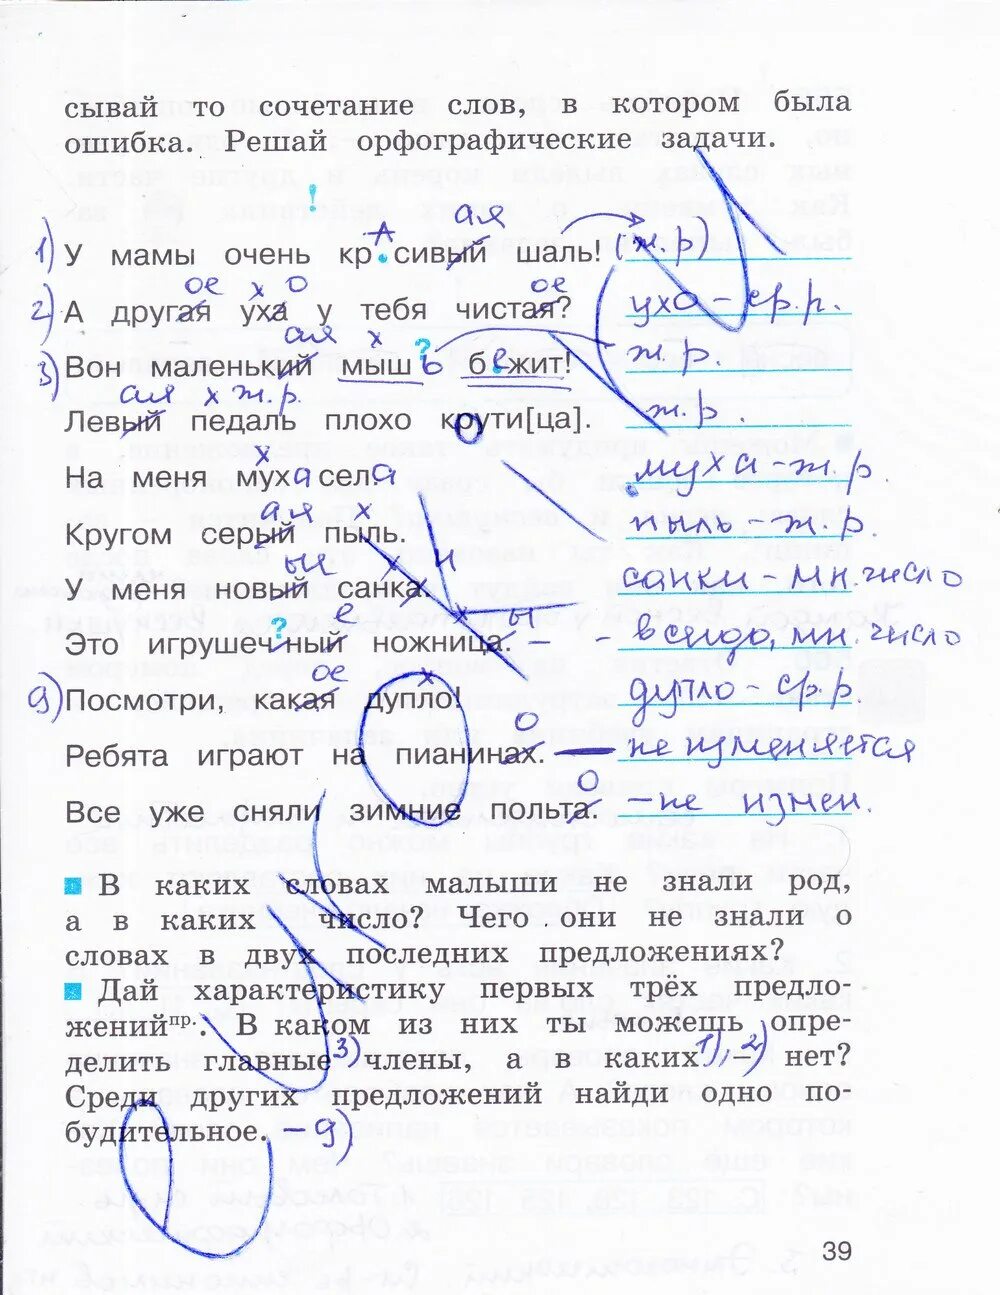 сывай то сочетание слов, в котором была
ошибка. Решай орфографические задачи.
!
А ая
1) У мамы очень кр.сивый шаль! (ж.р)
ое х о ое
2) А другая уха у тебя чистая? ухо - ср.р.
ая х ?
3) Вон маленький мышь бежит! ж.р.
ая х ж.р.
Левый педаль плохо крути[ца]. ж.р.
х
На меня муха села муха - ж.р.
ая х
Кругом серый пыль. пыль - ж.р.
ые х и
У меня новый санка. санки - мн.число
? е х ы
Это игрушечный ножница. - - всегда, мн.число
ое х
9) Посмотри, какая дупло! дупло - ср.р
о
Ребята играют на пианинах. — не изменяется
о
Все уже сняли зимние польта. - не измен.
В каких словах малыши не знали род,
а в каких число? Чего они не знали о
словах в двух последних предложениях?
Дай характеристику первых трёх предло-
женийпр.. В каком из них ты можешь опре-
делить главные 3) члены, а в каких 1), 2) — нет?
Среди других предложений найди одно по-
будительное. - 9)
39